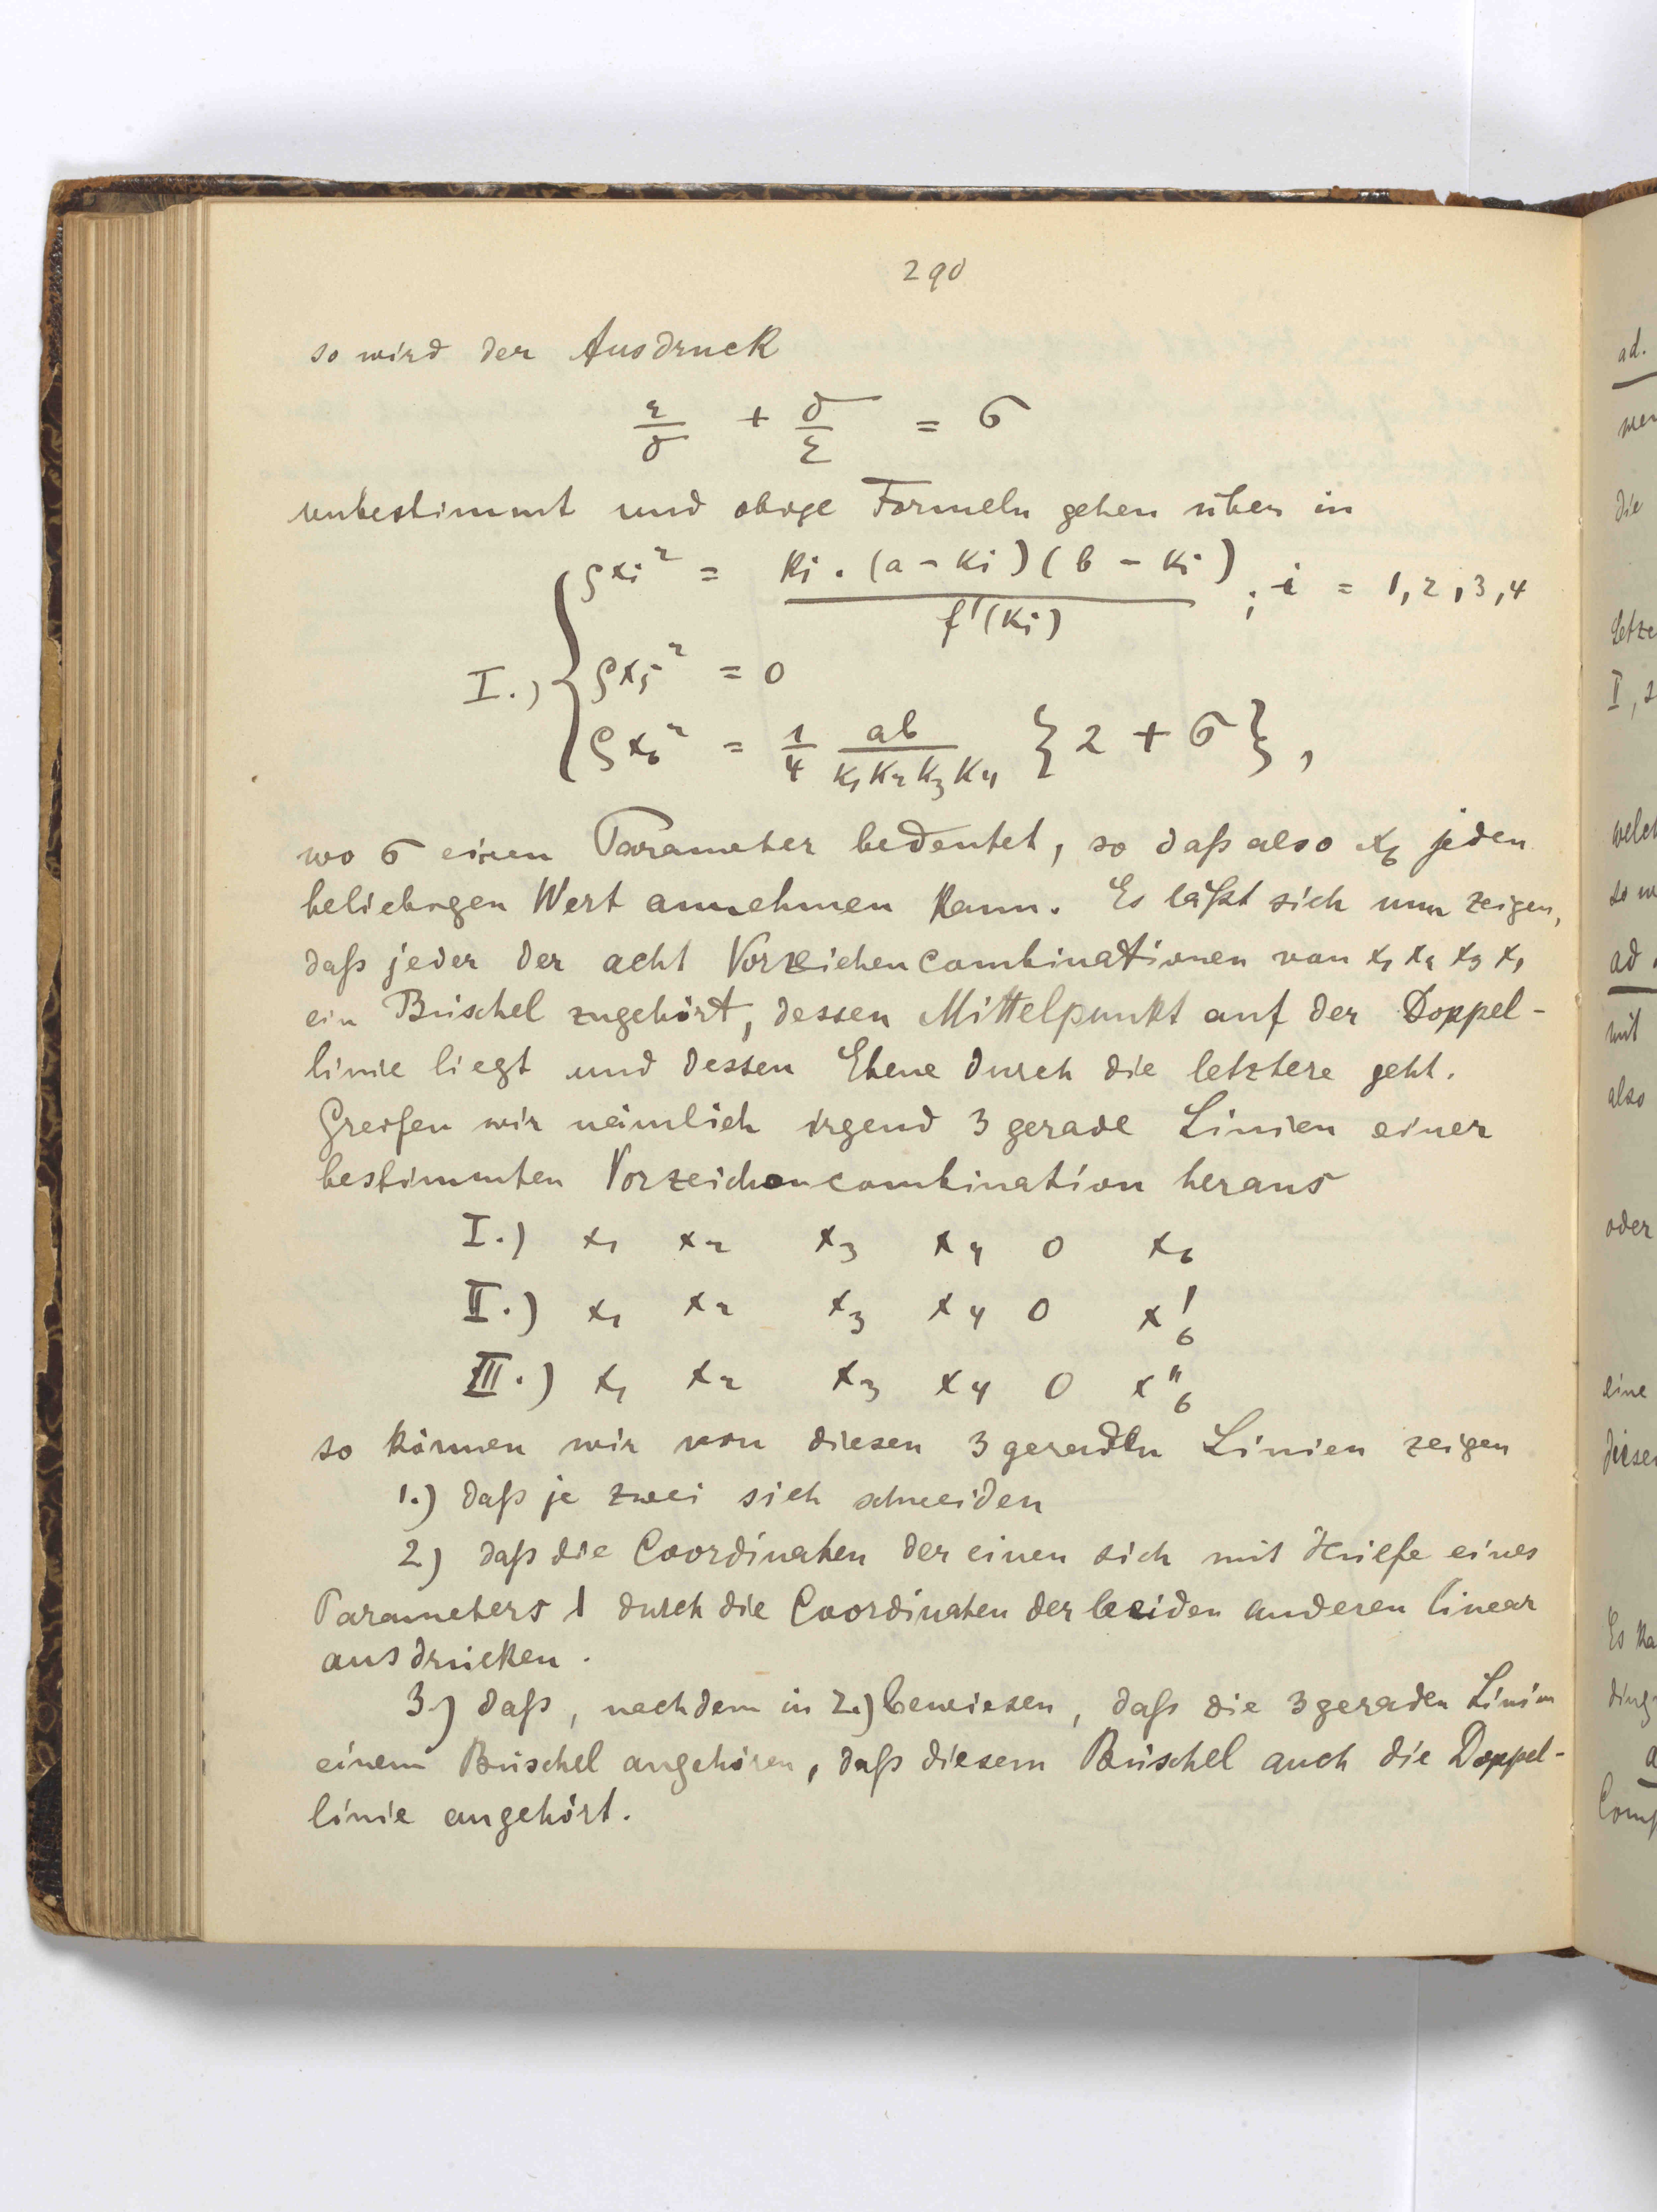 290
so wird der Ausdruck
τ/σ + σ/τ = σ
unbestimmt und obige Formeln gehen über in
ρxi² = Ki . (a - Ki)(b - Ki) / f'(Ki) ; i = 1,2,3,4
I.) ρx5² = 0
ρx6² = 1/4 ab/K1K2K3K4 {2 + σ},
wo σ einen Parameter bedeutet, so daß also x6 jeden
beliebigen Wert annehmen kann. Es läßt sich nun zeigen,
daß jeder der acht Vorzeichencombinationen von x1 x2 x3 x4
ein Büschel zugehört, dessen Mittelpunkt auf der Doppel-
linie liegt und dessen Ebene durch die letztere geht.
Greifen wir nämlich irgend 3 gerade Linien einer
bestimmten Vorzeichencombination heraus
I.) x1 x2 x3 x4 0 x6
II.) x1 x2 x3 x4 0 x'6
III.) x1 x2 x3 x4 0 x"6
so können wir von diesen 3 geraden Linien zeigen
1.) daß je zwei sich schneiden
2) daß die Coordinaten der einen sich mit Hülfe eines
Parameters λ durch die Coordinaten der beiden anderen linear
ausdrücken.
3.) daß, nachdem in 2.) bewiesen, daß die 3 geraden Linien
einem Büschel angehören, daß diesem Büschel auch die Doppel-
linie angehört.
ad.
die
I,
ad
mit
also
oder
eine